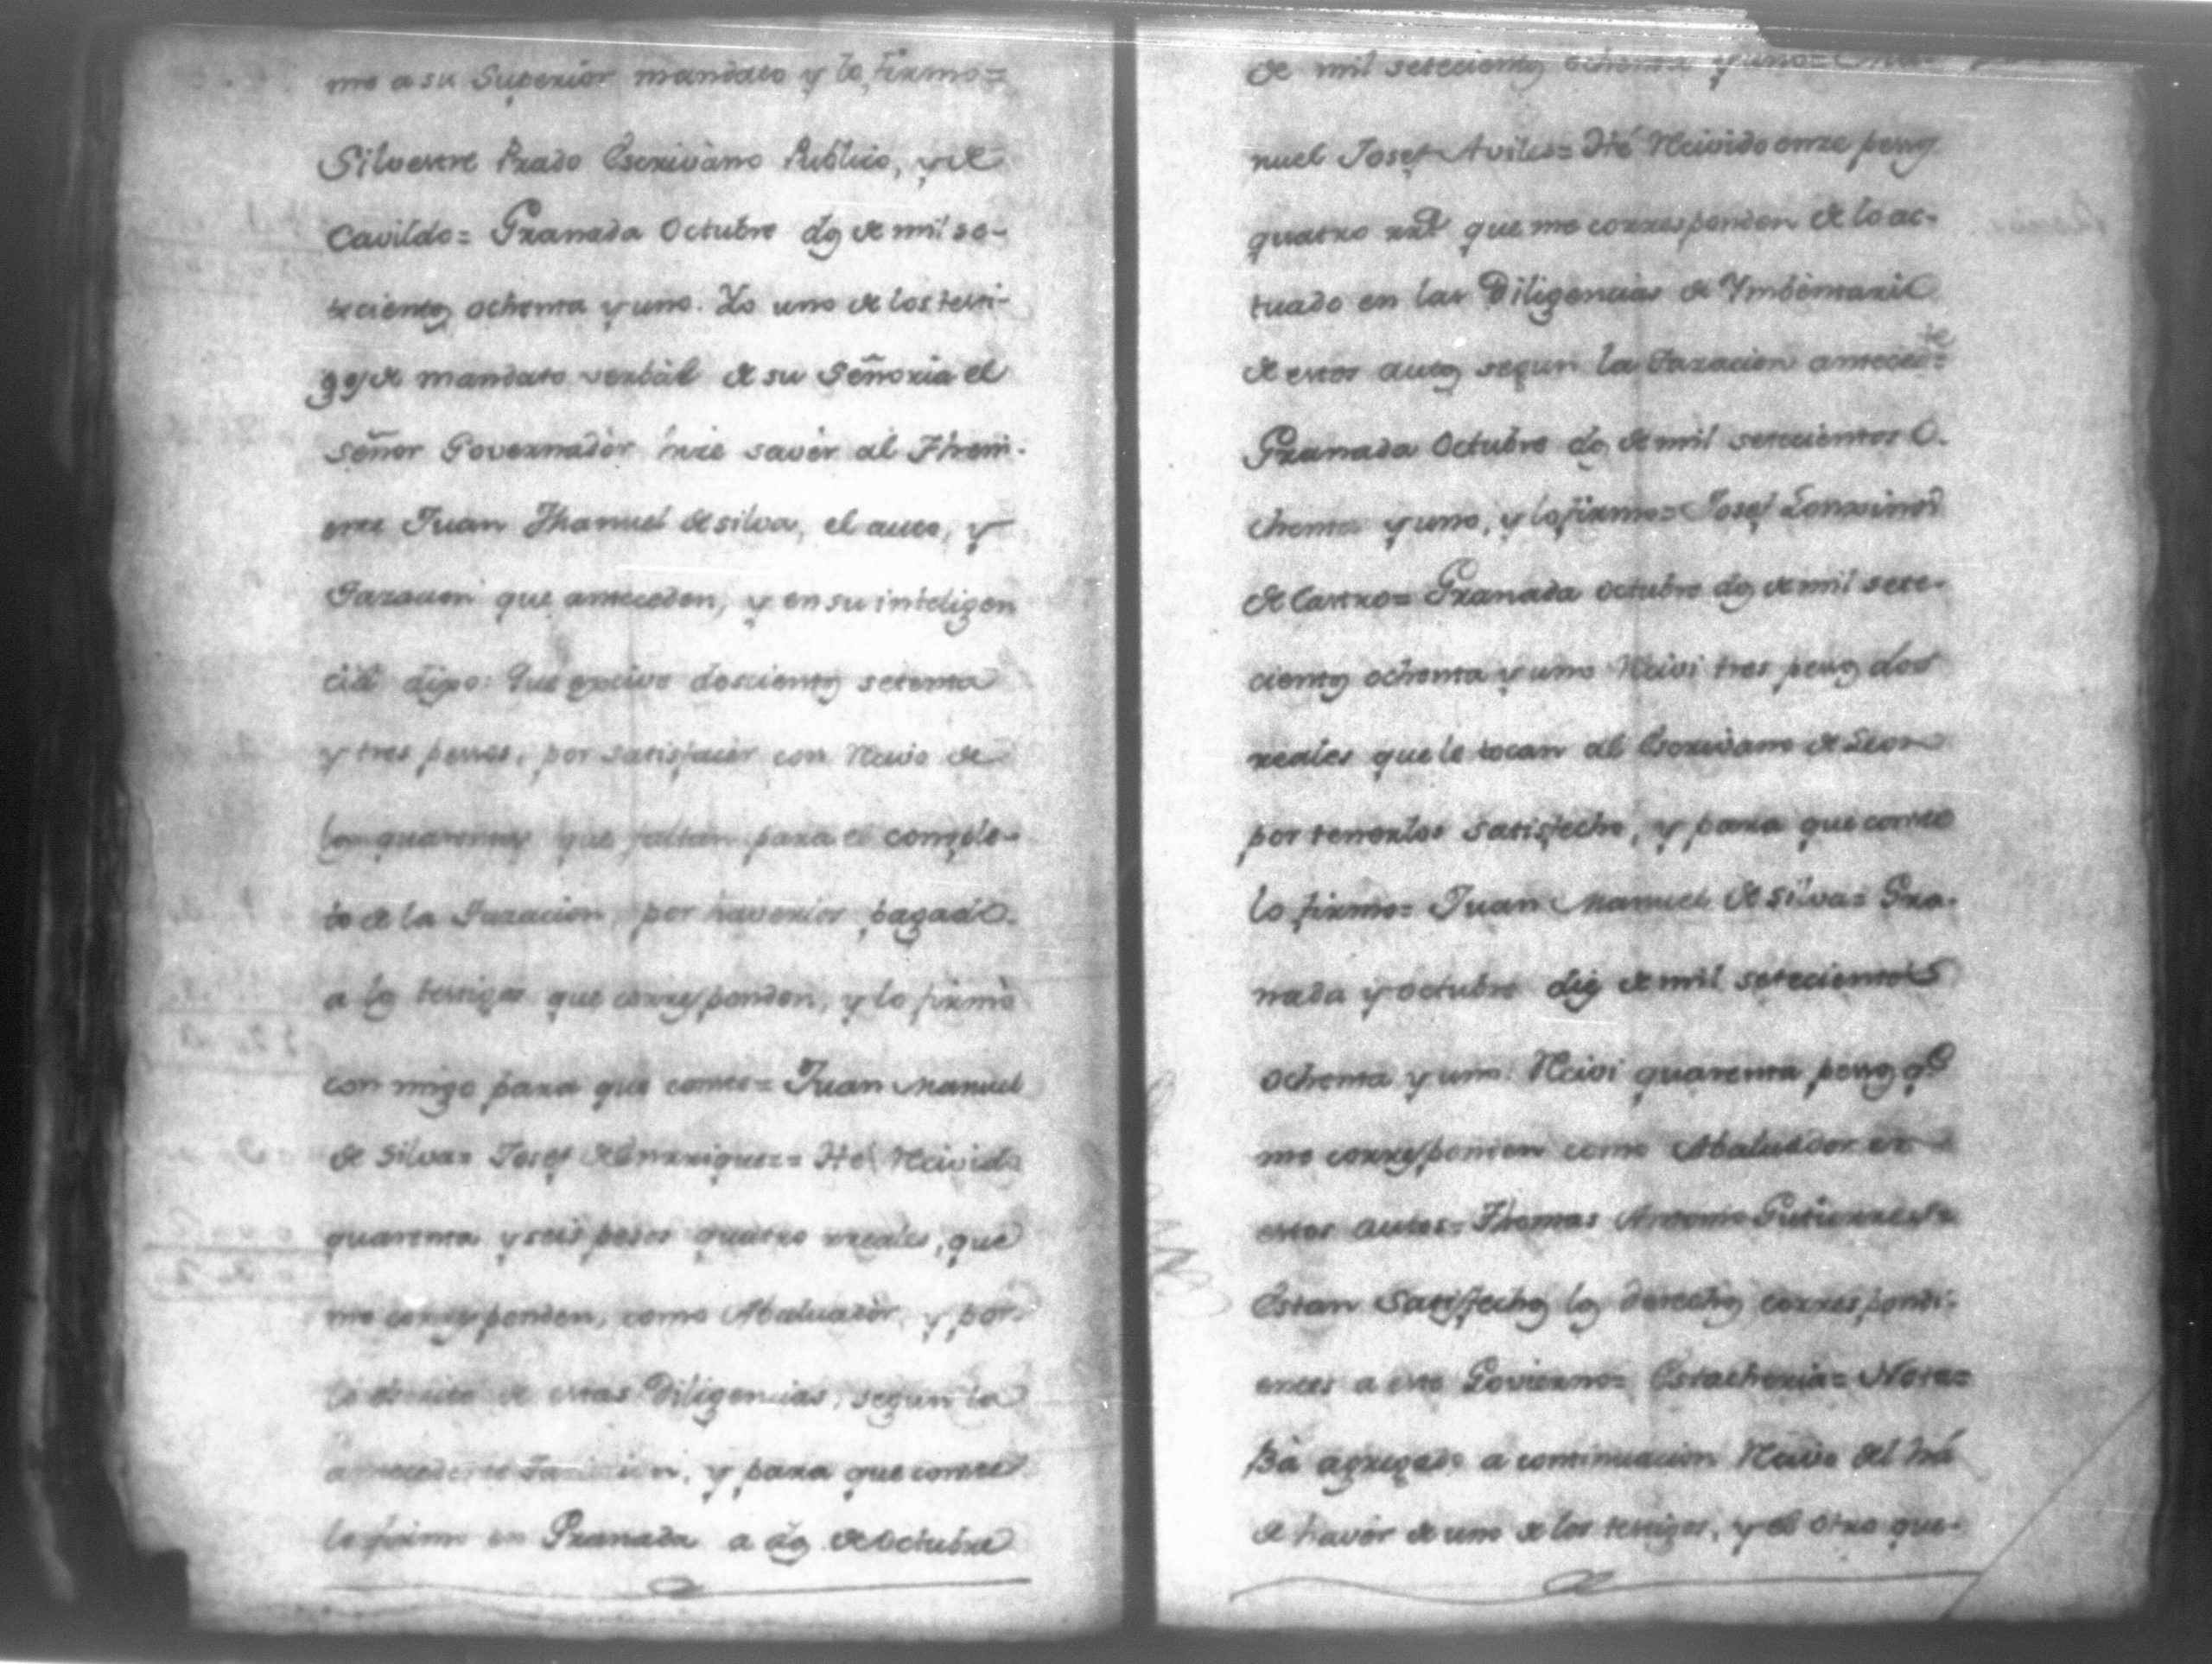 mo a su Superiór mandato y lo firmo=
Silvestre Prado Escrivàno Publico, y de
Cavildo= Granada Octubre dos de mil se-
tecientos ochenta y uno. Yo uno de los testi-
gos de mandato verbàl de su Señoria el
Señor Governadòr hize savèr al Theni-
ente Juan Manuel de silva, el auto, y
Tazacion que anteceden, y en su inteligen
cia dijo: Que docientos setenta
y tres pesos, por satisfacèr con Recivo de
los quarenta que faltan para el comple-
to de la Tazacion, por haverlos pagado
a los testigos que corresponden, y lo firmò
con migo para que conste= Juan Manuel
de Silva= Josef Henrriquez= Hé Recivido
quarenta y seis pesos quatro rreales, que
me corresponden, como Abaluadòr, y por
lo escrito de estas Diligencias, segun la
antecedente Tazacion, y para que conste
lo firmo en Granada a dos de Octubre
de mil setecientos ochenta y uno= Ma-
nuel Josef Aviles= Hé Recivido onze pesos
quatro rrs que me corresponden de lo ac-
tuado en las Diligencias de Ymbentario
de estos autos segun la Tazacion anteced.te=
Granada Octubre dos de mil setecientos o-
chenta y uno, y lo firmo= Josef Longinos
de Castro= Granada octubre dos de mil sete-
cientos ochenta y uno Recivi tres pesos dos
reales que le tocan al Escrivano de Leon
por tenerlos satisfecho, y para que conste
lo firmo= Juan Manuel de silva= Gra-
nada y octubre dies de mil setecientos
ochenta y uno. Recivi quarenta pesos q.e
me corresponden como Abaluador en
estos autos= Thomas Antonio Gutierres=
Estan Satisfechos los derechos correspondi-
entes a este Govierno= Estacheria= Nota=
Bà agregado a continuacion Recivo del
de havèr de uno de los testigos, y el otro que-